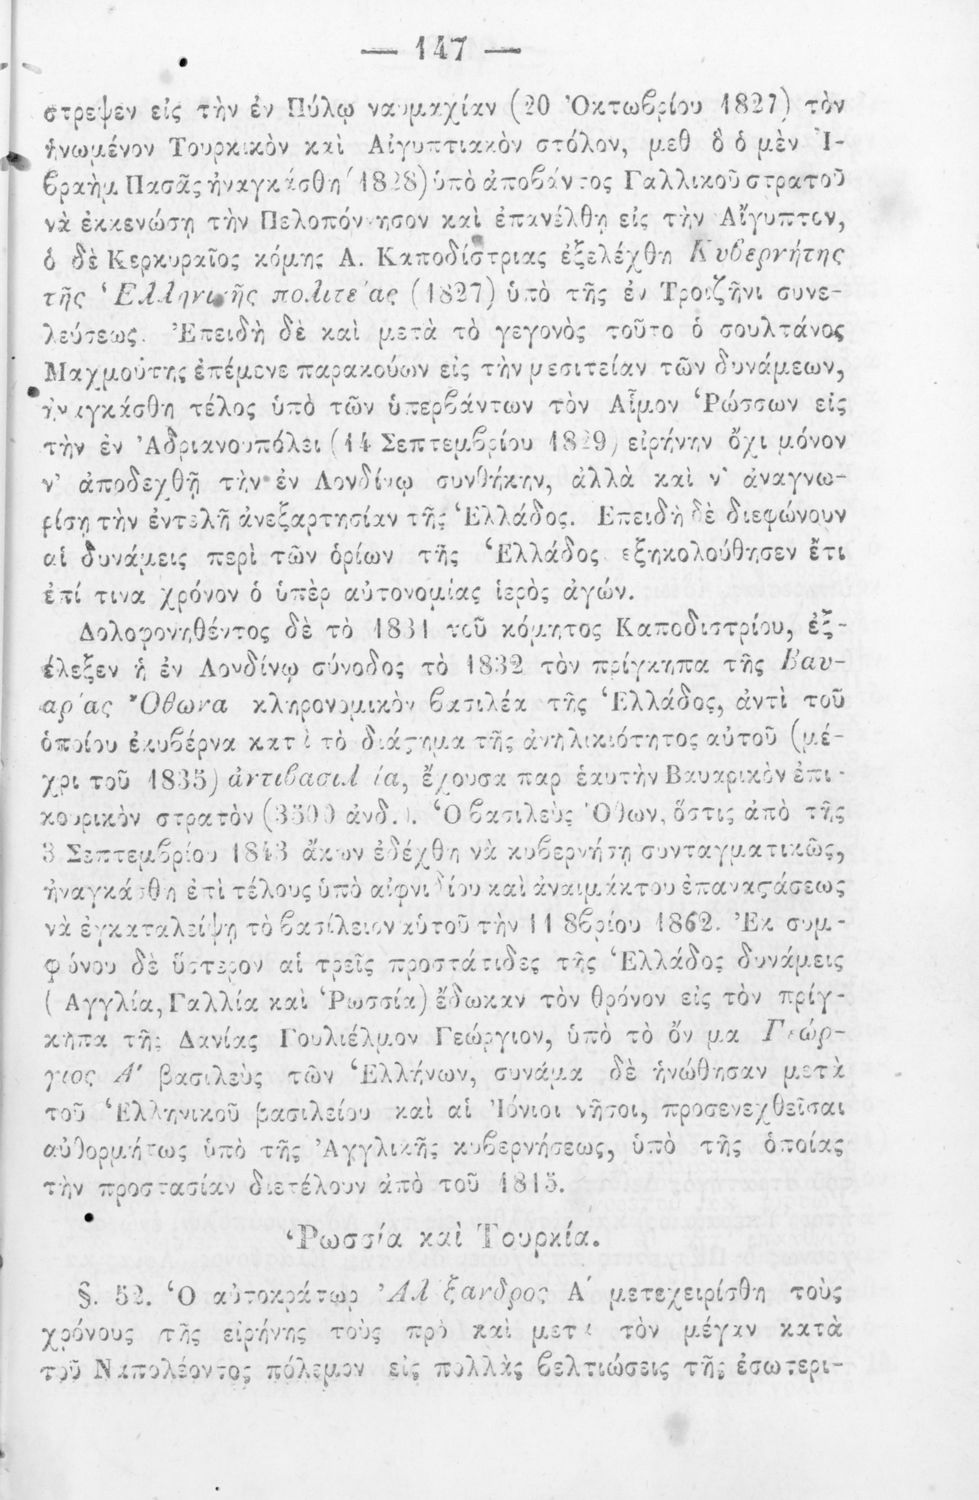 — 147 —
στρεψεν εἰς τὴν ἐν Πύλῳ ναυμαχίαν (20 Ὀκτωβρίου 1827) τὸν
ἡνωμένον Τουρκικὸν καὶ Αἰγυπτιακὸν στόλον, μεθ ὃ ὁ μὲν Ἰ-
βραὴμ Πασᾶς ἠναγκάσθη (1828) ὑπὸ ἀποβάντος Γαλλικοῦ στρατοῦ
νὰ ἐκκενώσῃ τὴν Πελοπόννησον καὶ ἐπανέλθῃ εἰς τὴν Αἴγυπτον,
ὁ δὲ Κερκυραῖος κόμης Α. Καποδίστριας ἐξελέχθη Κυβερνήτης
τῆς Ἑλληνικῆς πολιτείας (1827) ὑπὸ τῆς ἐν Τροιζῆνι συνε-
λεύσεως. Ἐπειδὴ δὲ καὶ μετὰ τὸ γεγονὸς τοῦτο ὁ σουλτάνος
Μαχμούτης ἐπέμενε παρακούων εἰς τὴν μεσιτείαν τῶν δυνάμεων,
ἠναγκάσθη τέλος ὑπὸ τῶν ὑπερβάντων τὸν Αἷμον Ῥώσσων εἰς
τὴν ἐν Ἀδριανουπόλει (14 Σεπτεμβρίου 1829) εἰρήνην ὄχι μόνον
ν' ἀποδεχθῇ τὴν ἐν Λονδίνῳ συνθήκην, ἀλλὰ καὶ ν' ἀναγνω-
ρίσῃ τὴν ἐντελῆ ἀνεξαρτησίαν τῆς Ἑλλάδος. Ἐπειδὴ δὲ διεφώνουν
αἱ δυνάμεις περὶ τῶν ὁρίων τῆς Ἑλλάδος ἐξηκολούθησεν ἔτι
ἐπί τινα χρόνον ὁ ὑπὲρ αὐτονομίας ἱερὸς ἀγών.
Δολοφονηθέντος δὲ τὸ 1831 τοῦ κόμητος Καποδιστρίου, ἐξ-
έλεξεν ἡ ἐν Λονδίνῳ σύνοδος τὸ 1832 τὸν πρίγκηπα τῆς Βαυ-
αρίας Ὄθωνα κληρονομικὸν βασιλέα τῆς Ἑλλάδος, ἀντὶ τοῦ
ὁποίου ἐκυβέρνα κατὰ τὸ διάστημα τῆς ἀνηλικιότητος αὐτοῦ (μέ-
χρι τοῦ 1835) ἀντιβασιλεία, ἔχουσα παρ ἑαυτὴν Βαυαρικὸν ἐπι-
κουρικὸν στρατὸν (3500 ἀνδ.). Ὁ βασιλεὺς Ὄθων, ὅστις ἀπὸ τῆς
3 Σεπτεμβρίου 1843 ἄκων ἐδέχθη νὰ κυβερνήσῃ συνταγματικῶς,
ἠναγκάσθη ἐπὶ τέλους ὑπὸ αἰφνιδίου καὶ ἀναιμάκτου ἐπαναστάσεως
νὰ ἐγκαταλείψῃ τὸ βασίλειον αὑτοῦ τὴν 11 8βρίου 1862. Ἐκ συμ-
φώνου δὲ ὕστερον αἱ τρεῖς προστάτιδες τῆς Ἑλλάδος δυνάμεις
(Ἀγγλία, Γαλλία καὶ Ῥωσσία) ἔδωκαν τὸν θρόνον εἰς τὸν πρίγ-
κηπα τῆς Δανίας Γουλιέλμον Γεώργιον, ὑπὸ τὸ ὄνομα Γεώρ-
γιος Α' βασιλεὺς τῶν Ἑλλήνων, συνάμα δὲ ἡνώθησαν μετὰ
τοῦ Ἑλληνικοῦ βασιλείου καὶ αἱ Ἰόνιοι νῆσοι, προσενεχθεῖσαι
αὐθορμήτως ὑπὸ τῆς Ἀγγλικῆς κυβερνήσεως, ὑπὸ τῆς ὁποίας
τὴν προστασίαν διετέλουν ἀπὸ τοῦ 1815.
Ῥωσσία καὶ Τουρκία.
§. 52. Ὁ αὐτοκράτωρ Ἀλέξανδρος Α' μετεχειρίσθη τοὺς
χρόνους τῆς εἰρήνης τοὺς πρὸ καὶ μετὰ τὸν μέγαν κατὰ
τοῦ Ναπολέοντος πόλεμον εἰς πολλὰς βελτιώσεις τῆς ἐσωτερι-